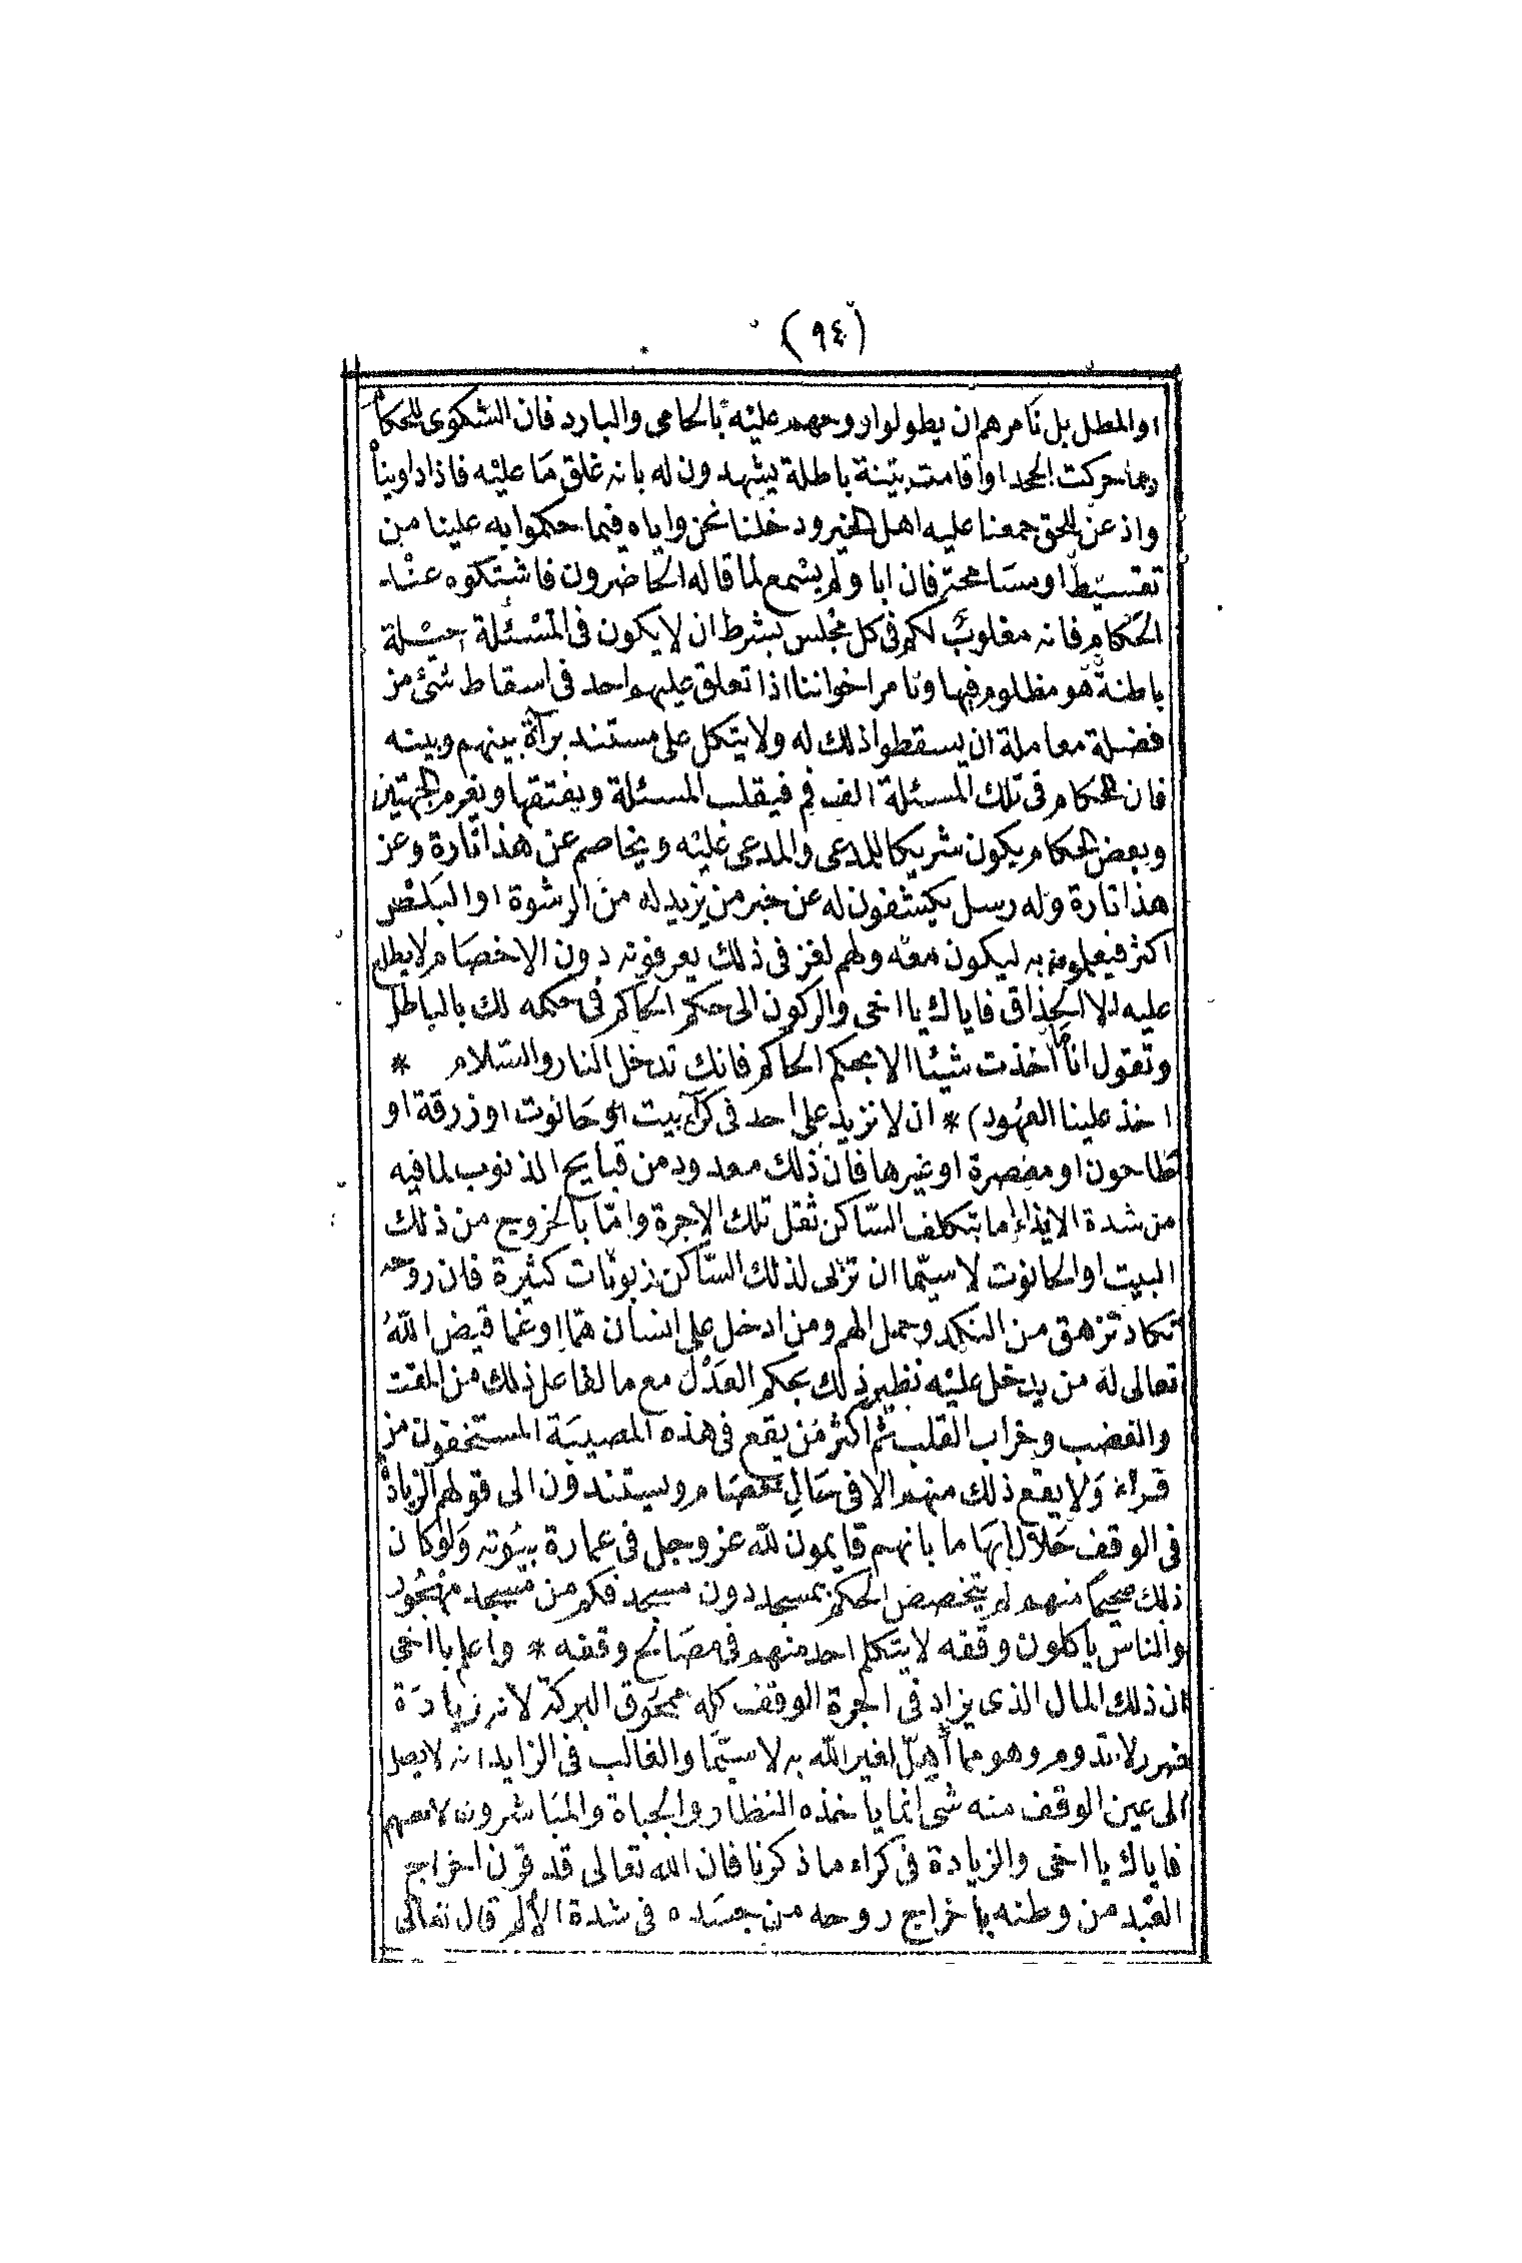 (٩٤)
او المطل بل نامرهم ان يطولوا روحهم عليه بالحامى والبارد فان الشكوى للحكام
ربما حركت الجحد او اقامت بينة باطلة يشهدون له بانه غلق ما عليه فاذا داويناه
واذعن للحق جمعنا عليه اهل الخير ودخلنا نحن واياه فيما حكموا به علينا من
تقسيط او مسامحة فان ابا ولم يسمع لما قاله الحاضرون فاشتكوه عند
الحكام فانه مغلوب لكم فى كل مجلس بشرط ان لا يكون فى المسئلة حيلة
باطنة هو مظلوم فيها ونامر اخواننا اذا تعلق عليهم احد فى اسقاط شئ من
فضلة معاملة ان يسقطوا ذلك له ولا يتكل على مستند برآة بينهم وبينه
فان للحكام فى تلك المسئلة الف فم فيقلب المسئلة ويفتقها ويغرم الجهتين
وبعض الحكام يكون شريكا للمدعى والمدعى عليه ويخاصم عن هذا تارة وعن
هذا تارة وله رسل يكشفون له عن خبر من يزيد له من الرشوة او البلص
اكثر فيعلمونه به ليكون معه ولهم لغز فى ذلك يعرفونه دون الاخصام لا يطلع
عليه الا الحذاق فاياك يا اخى والركون الى حكم الحاكم فى حكمه لك بالباطل
وتقول انا ما اخذت شيئا الا بحكم الحاكم فانك تدخل النار والسلام *
اخذ علينا العهود) * ان لا نزيد على احد فى كراء بيت او حانوت او زرقة او
طاحون او معصرة او غيرها فان ذلك معدود من قبايح الذنوب لما فيه
من شدة الايذاء اما بتكلف الساكن ثقل تلك الاجرة واما بالخروج من ذلك
البيت او الحانوت لا سيما ان ترى لذلك الساكن زبونات كثيرة فان روحه
تكاد تزهق من النكد وحمل الهم ومن ادخل على انسان هما او غما قيض الله
تعالى له من يدخل عليه نظير ذلك بحكم العدل مع ما لفاعل ذلك من المقت
والغضب وخراب القلب ثم اكثر من يقع فى هذه المصيبة المستخفون من
قراء ولا يقع ذلك منهم الا فى حال خصام ويستندون الى قولهم الزيادة
فى الوقف حلال ايهاما بانهم قايمون لله عز وجل فى عمارة بيوته ولو كان
ذلك صحيحا منهم لم يتخصص الحكم بمسجد دون مسجد فكم من مسجد مهجور
والناس ياكلون وقفه لا يتكلم احد منهم فى مصالح وقفه * واعلم يا اخى
ان ذلك المال الذى يزاد فى اجرة الوقف كله ممحوق البركة لانه زيادة
ضرر لا تدوم وهو مما أهل لغير الله به لا سيما والغالب فى الزايد انه لا يصل
الى عين الوقف منه شى انما ياخذه النظار والجباة والمباشرون لانفسهم
فاياك يا اخى والزيادة فى كراء ما ذكرنا فان الله تعالى قد قرن اخراج
العبد من وطنه باخراج روحه من جسده فى شدة الألم قال تعالى